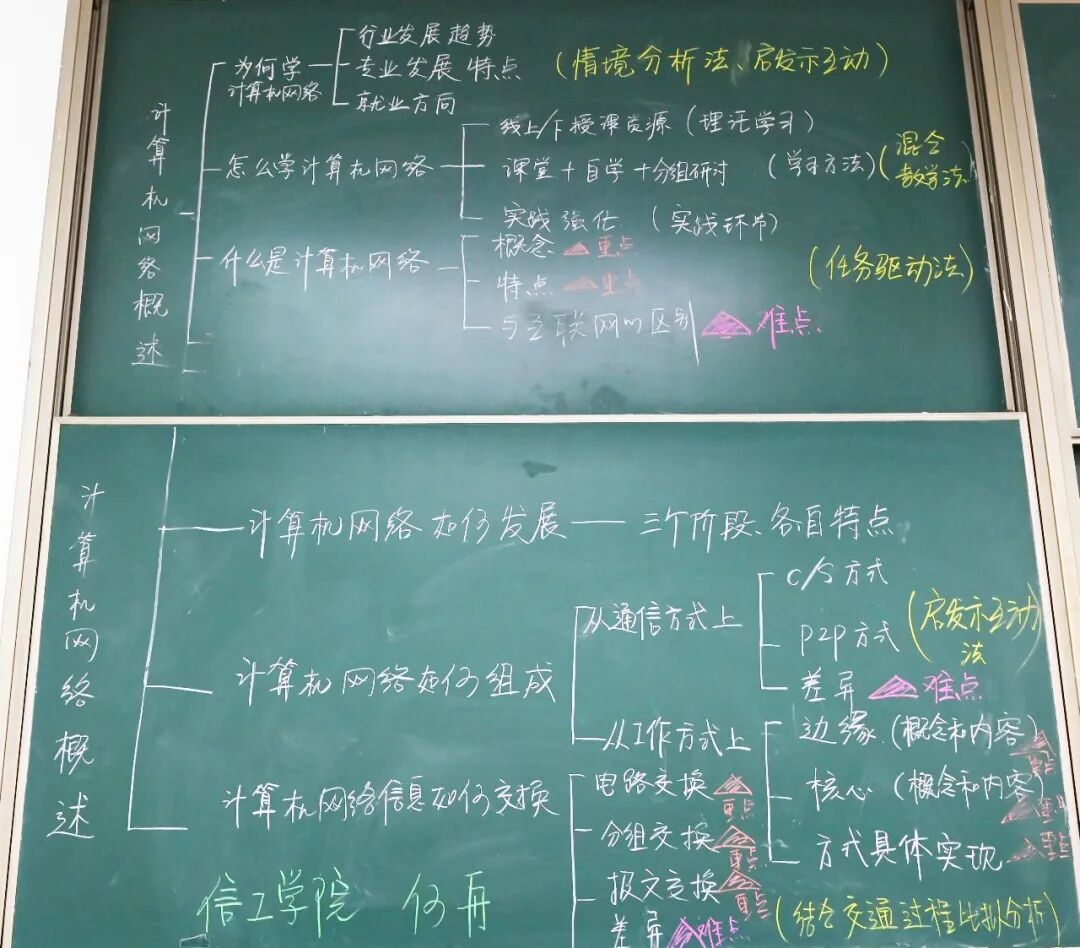 计算机网络概述
为何学
计算机网络
行业发展趋势
专业发展特点
就业方向
(情境分析法、启发示互动)
怎么学计算机网络
线上/下授课资源(理论学习)
课堂+自学+分组研讨 (学习方法)
实践强化 (实践环节)
(混合
教学法)
什么是计算机网络
概念 重点
特点 重点
与互联网的区别 难点
(任务驱动法)
计算机网络概述
计算机网络如何发展
三个阶段、各自特点
计算机网络如何组成
从通信方式上
C/S方式
P2P方式
差异 难点
(启发示互动
法)
从工作方式上
边缘(概念和内容)
重点
核心(概念和内容)
重点
方式具体实现 重点
计算机网络信息如何交换
电路交换
重点
分组交换
重点
报文交换
重点
差异 难点
(结合交通过程比拟分析)
信工学院 何冉